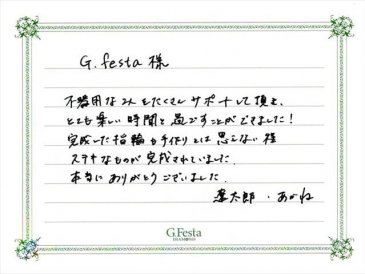 G.festa 様
不器用な2人をたくさんサポートして頂き、
とても楽しい時間を過ごすことができました！
完成した指輪も手作りとは思えない程
ステキなものが完成されていました。
本当にありがとうございました。
遼太郎・あかね
G.Festa
DIAMOND